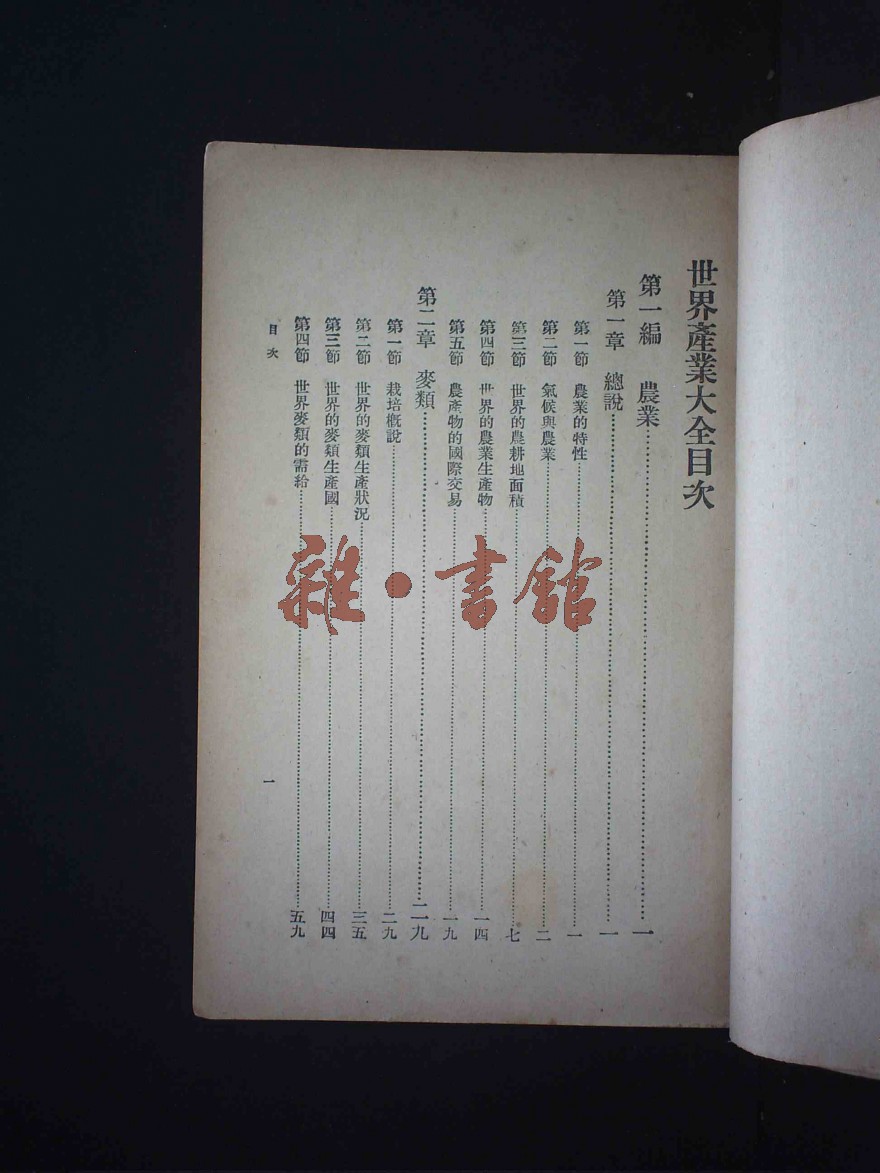 世界產業大全目次
第一編　農業…………一
第一章　總說…………一
第一節　農業的特性…………一
第二節　氣候與農業…………二
第三節　世界的農耕地面積…………七
第四節　世界的農業生產物…………一四
第五節　農產物的國際交易…………一九
第二章　麥類…………二一九
第一節　栽培概說…………二九
第二節　世界的麥類生產狀況…………三五
第三節　世界的麥類生產國…………四四
第四節　世界麥類的需給…………五九
目次　一
雜·書館